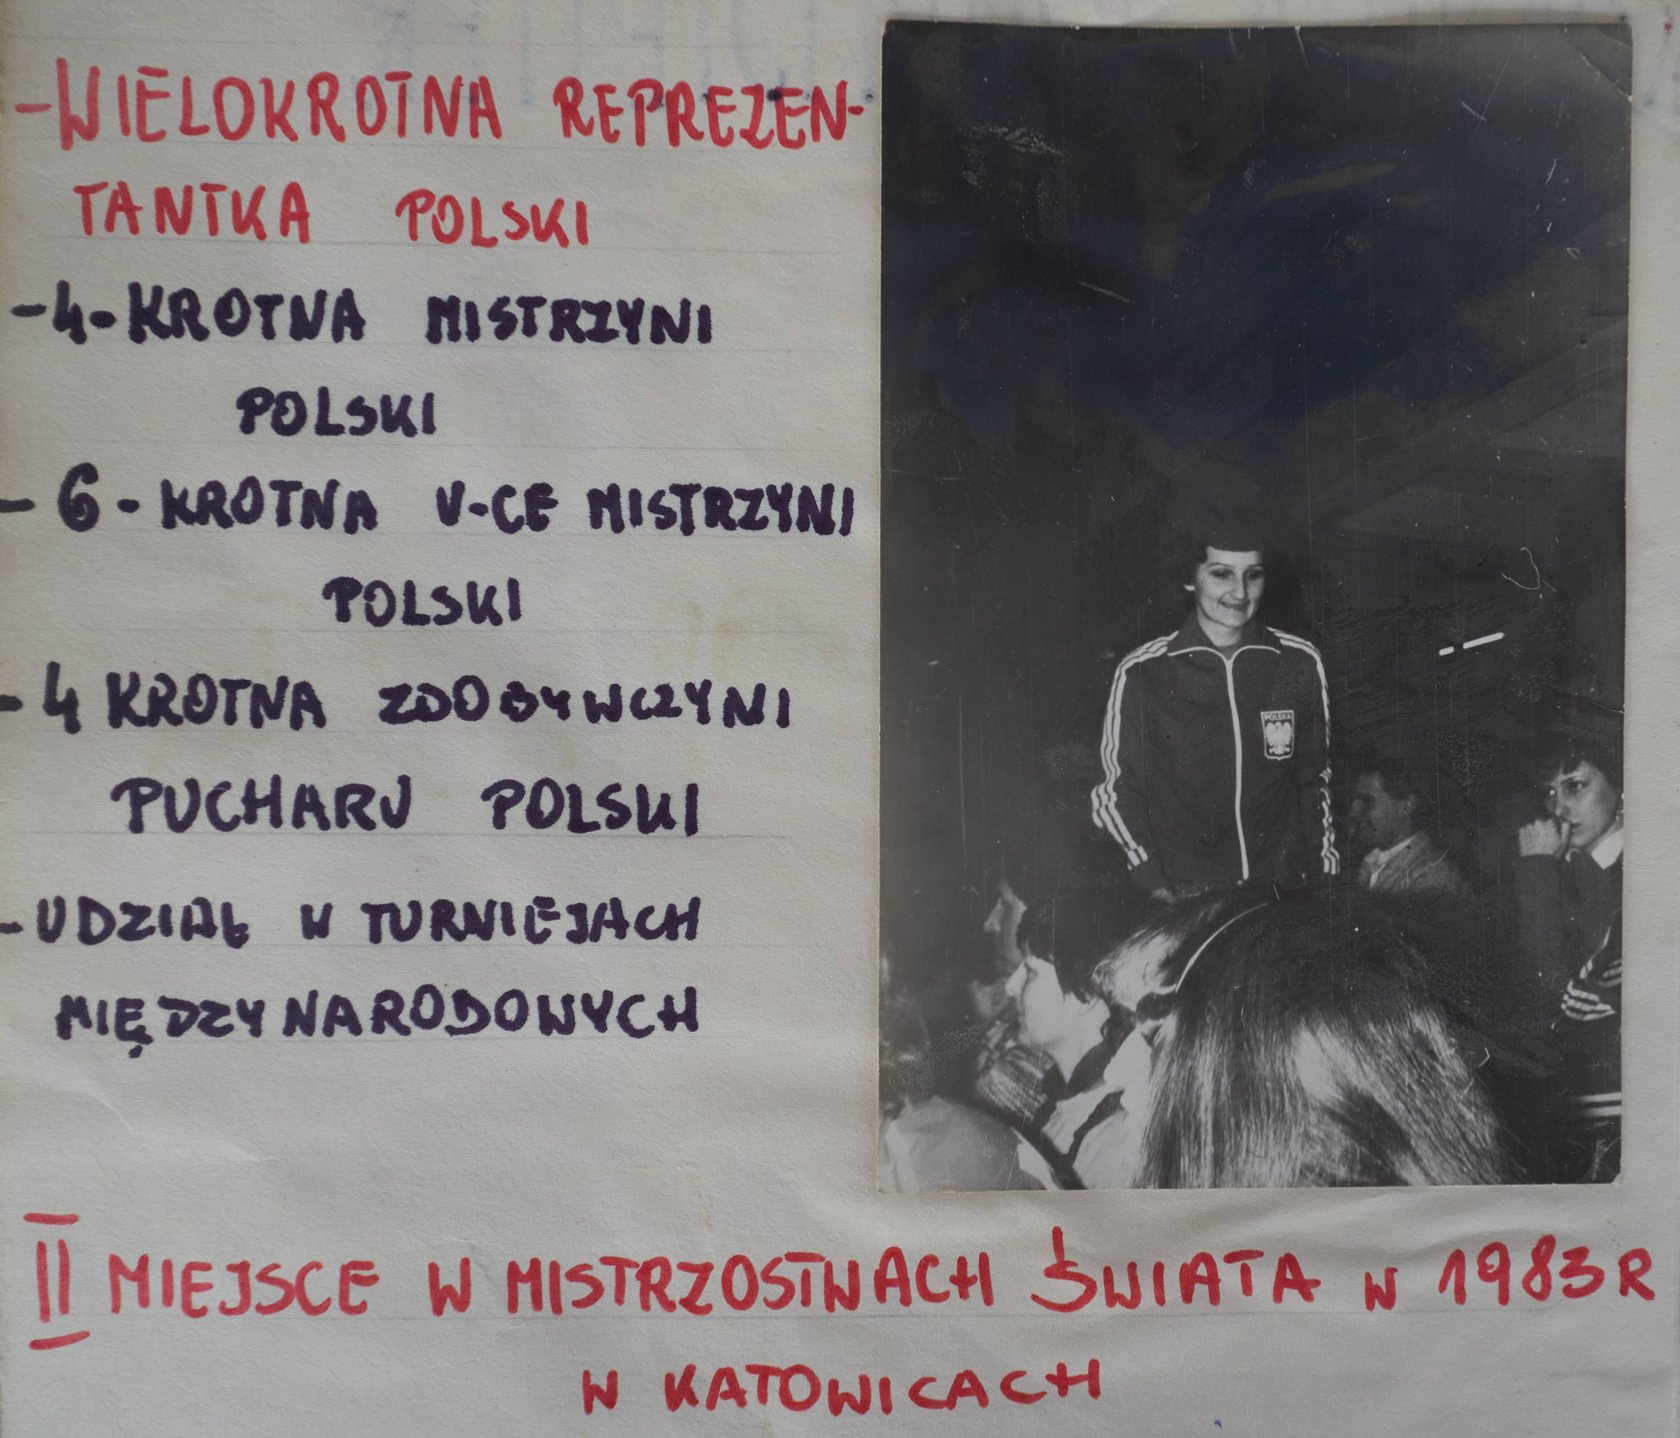 -WIELOKROTNA REPREZEN-
TANTKA POLSKI
-4-KROTNA MISTRZYNI
POLSKI
-6-KROTNA V-CE MISTRZYNI
POLSKI
-4 KROTNA ZDOBYWCZYNI
PUCHARU POLSKI
-UDZIAŁ W TURNIEJACH
MIĘDZYNARODOWYCH
POLSKA
II MIEJSCE W MISTRZOSTWACH ŚWIATA W 1983R
W KATOWICACH